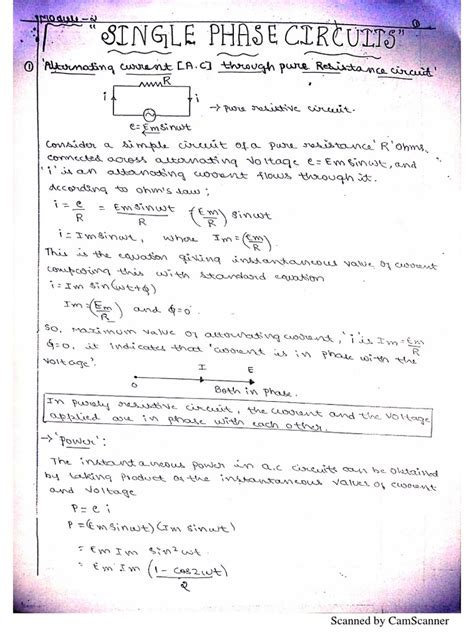 Module - 2
"SINGLE PHASE CIRCUITS"
① 'Alternating current [A.C] through pure Resistance circuit'
R
i
i
→ pure resistive circuit.
e = Em sinωt
Consider a simple circuit of a pure resistance 'R' ohms,
connected across alternating voltage e = Em sinωt, and
'i' is an alternating current flows through it.
According to ohm's law;
i = e/R = Em sinωt/R (Em/R) sinωt
i = Im sinωt, where Im = (Em/R)
This is the equation giving instantaneous value of current
comparing this with standard equation
i = Im sin(ωt+ϕ)
Im = (Em/R) and ϕ=0
So, maximum value of alternating current, 'i' is Im = Em/R
ϕ=0. it indicates that 'current is in phase with the
voltage'.
I E
O
Both in phase.
In purely resistive circuit, the current and the voltage
applied are in phase with each other.
→ 'power':
The instantaneous power in a.c circuits can be obtained
by taking product of the instantaneous values of current
and voltage
P = e i
P = (Em sinωt)(Im sinωt)
= Em Im sin²ωt
= Em Im (1 - cos2ωt)/2
Scanned by CamScanner